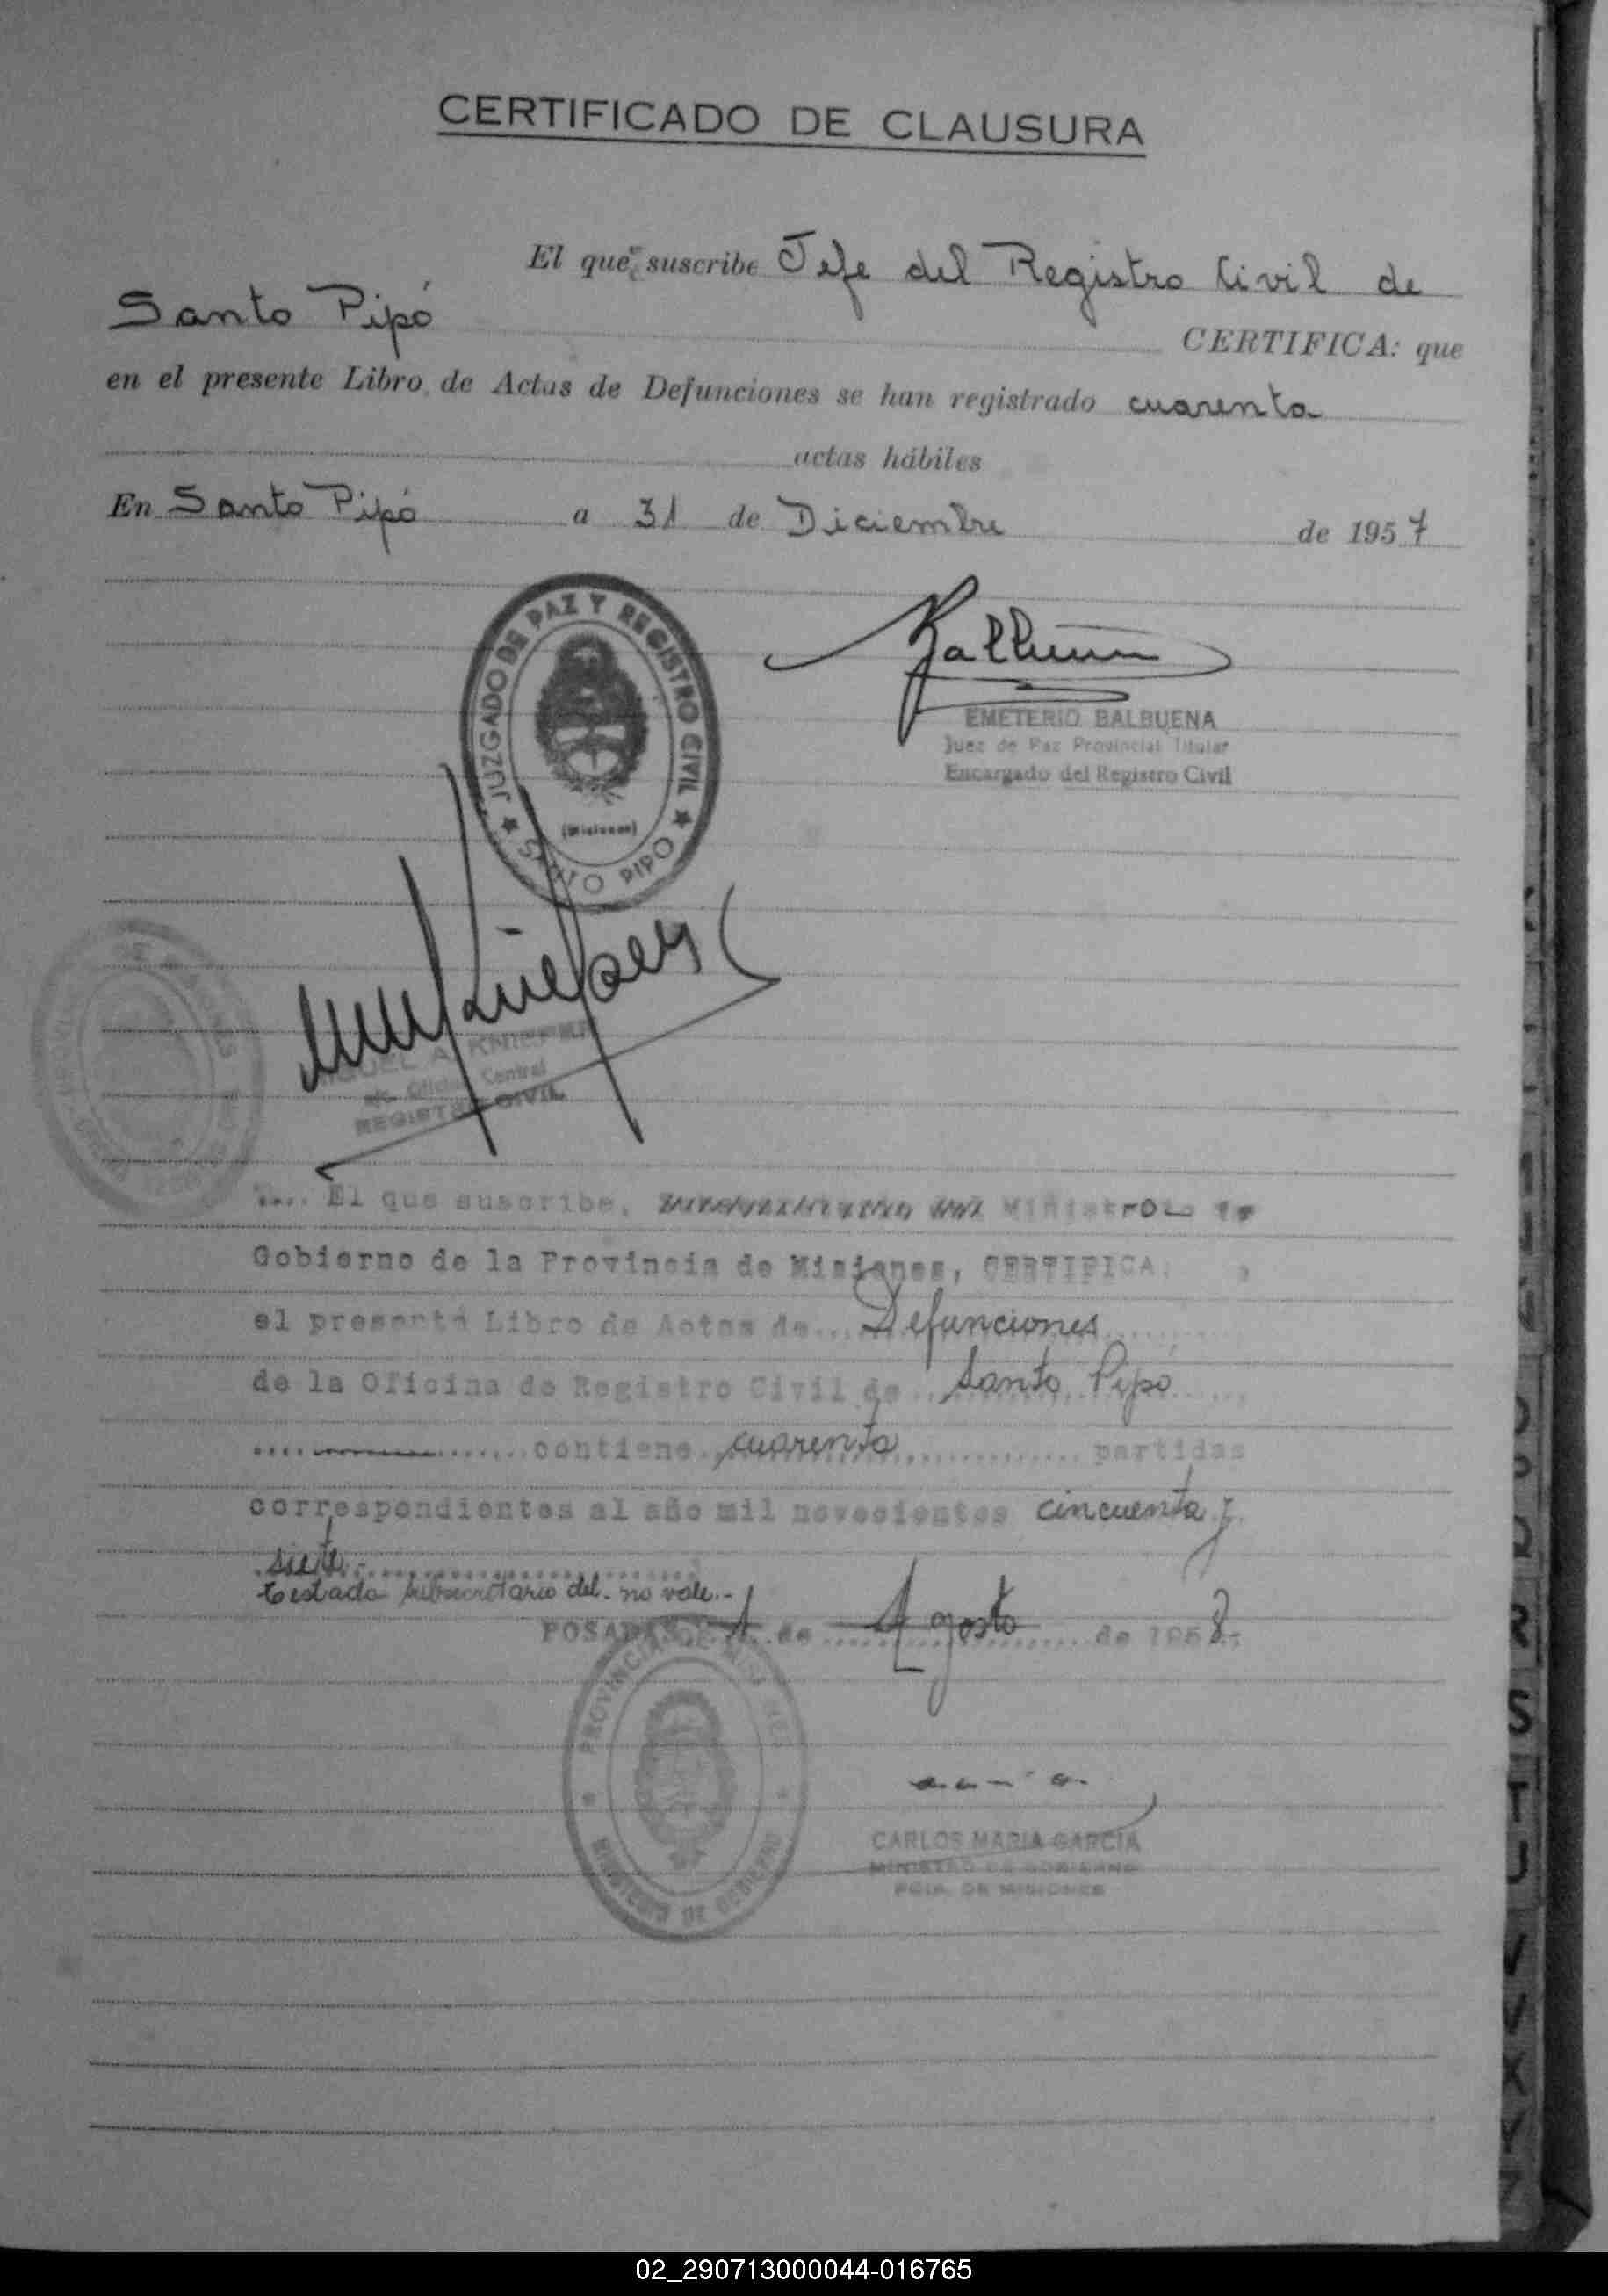 CERTIFICADO DE CLAUSURA
El que suscribe Jefe del Registro Civil de
Santo Pipó CERTIFICA: que
en el presente Libro de Actas de Defunciones se han registrado cuarenta
actas hábiles
En Santo Pipó a 31 de Diciembre de 1957
JUZGADO DE PAZ Y REGISTRO CIVIL
(Misiones)
SANTO PIPO
Balbuena
EMETERIO BALBUENA
Juez de Paz Provincial Titular
Encargado del Registro Civil
MIGUEL A. KNIEPER
Oficina Central
REGISTRO CIVIL
El que suscribe, Ministro de
Gobierno de la Provincia de Misiones, CERTIFICA:
el presente Libro de Actas de Defunciones
de la Oficina de Registro Civil de Santo Pipo
contiene cuarenta partidas
correspondientes al año mil novecientos cincuenta y
siete
Testado subsecretario del - no vale.-
POSADAS, 1 de Agosto de 1958.
PROVINCIA DE MISIONES
MINISTERIO DE GOBIERNO
CARLOS MARIA GARCIA
MINISTRO DE GOBIERNO
PCIA. DE MISIONES
R
S
T
U
V
X
Y
Z
02_290713000044-016765